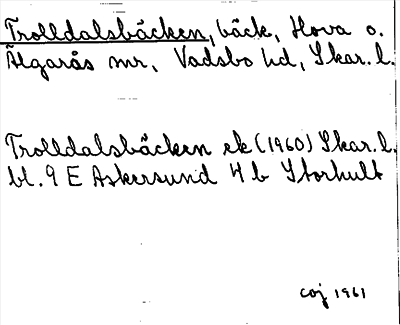 Trolldalsbäcken, bäck, Hova o.
Älgarås mr, Vadsbo hd, Skar. l.
Trolldalsbäcken ek (1960) Skar. l.
bl. 9 E Askersund 4 b Storhult
coj 1961